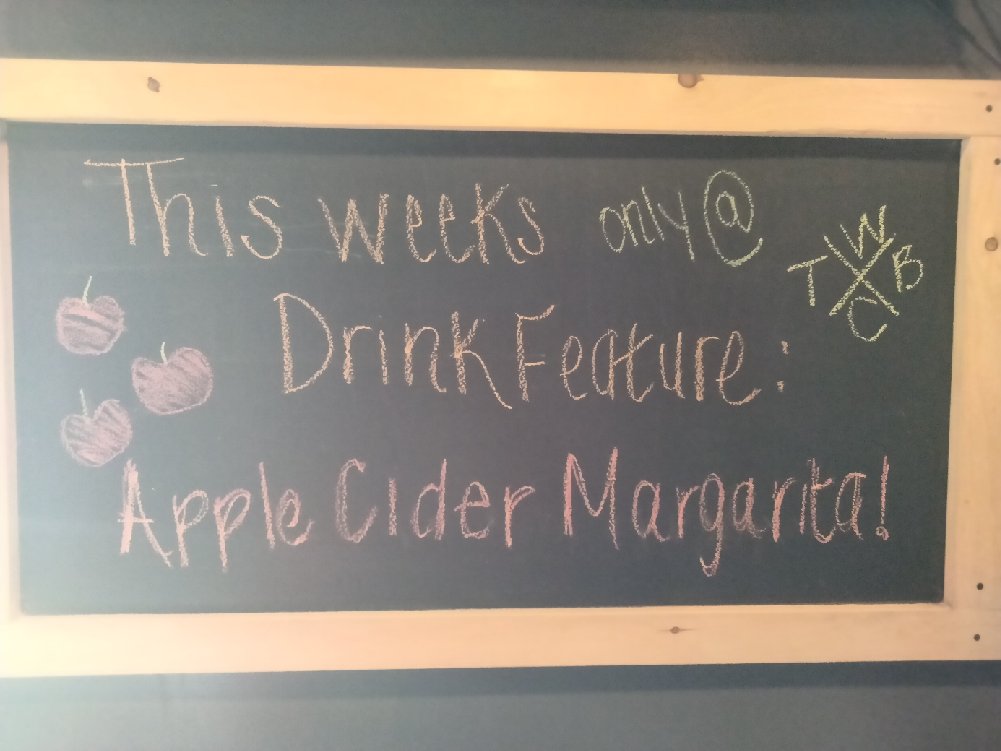 This weeks only @
T W B C
Drink Feature:
Apple Cider Margarita!